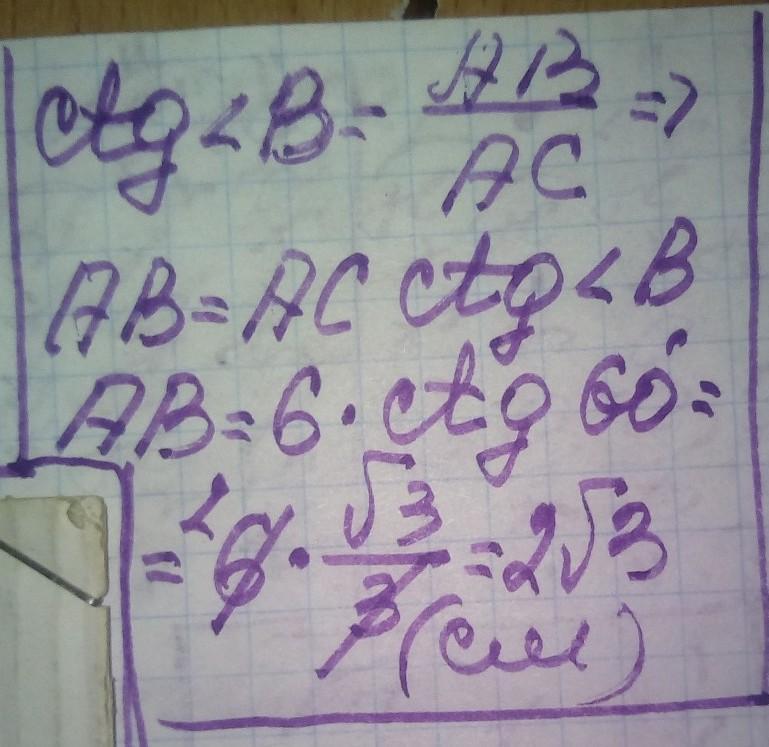 ctg < B = AB/AC =>
AB = AC ctg < B
AB = 6 · ctg 60° =
= ²6 · √3/3 = 2√3
(см)